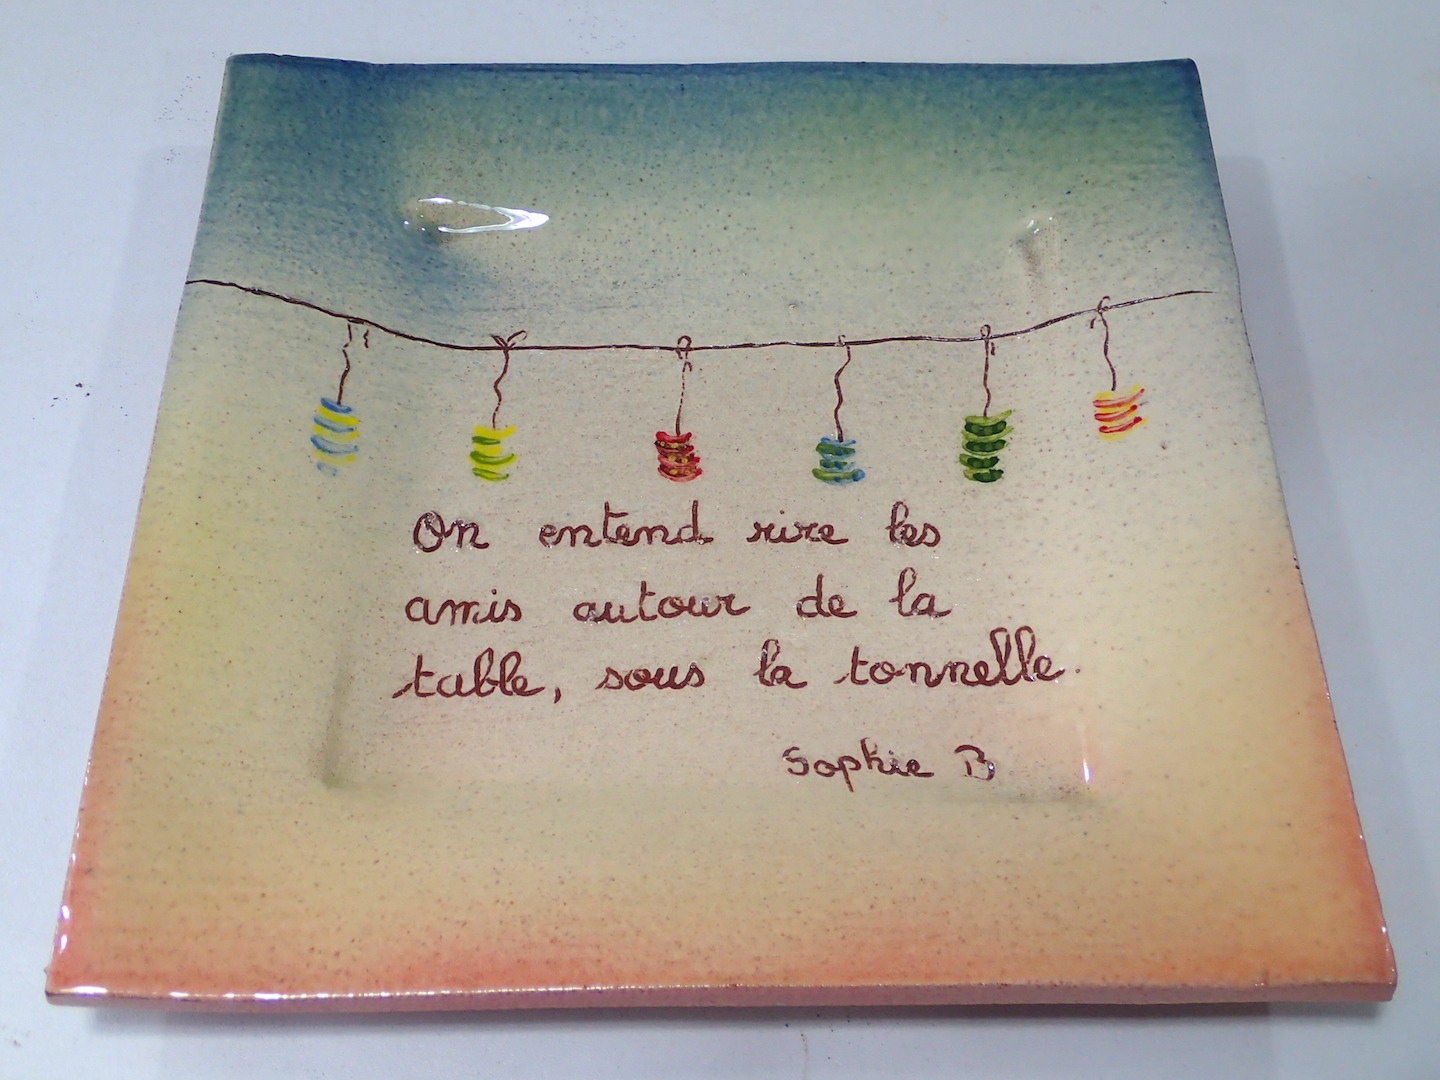 On entend rire les
amis autour de la
table, sous la tonnelle.
Sophie B